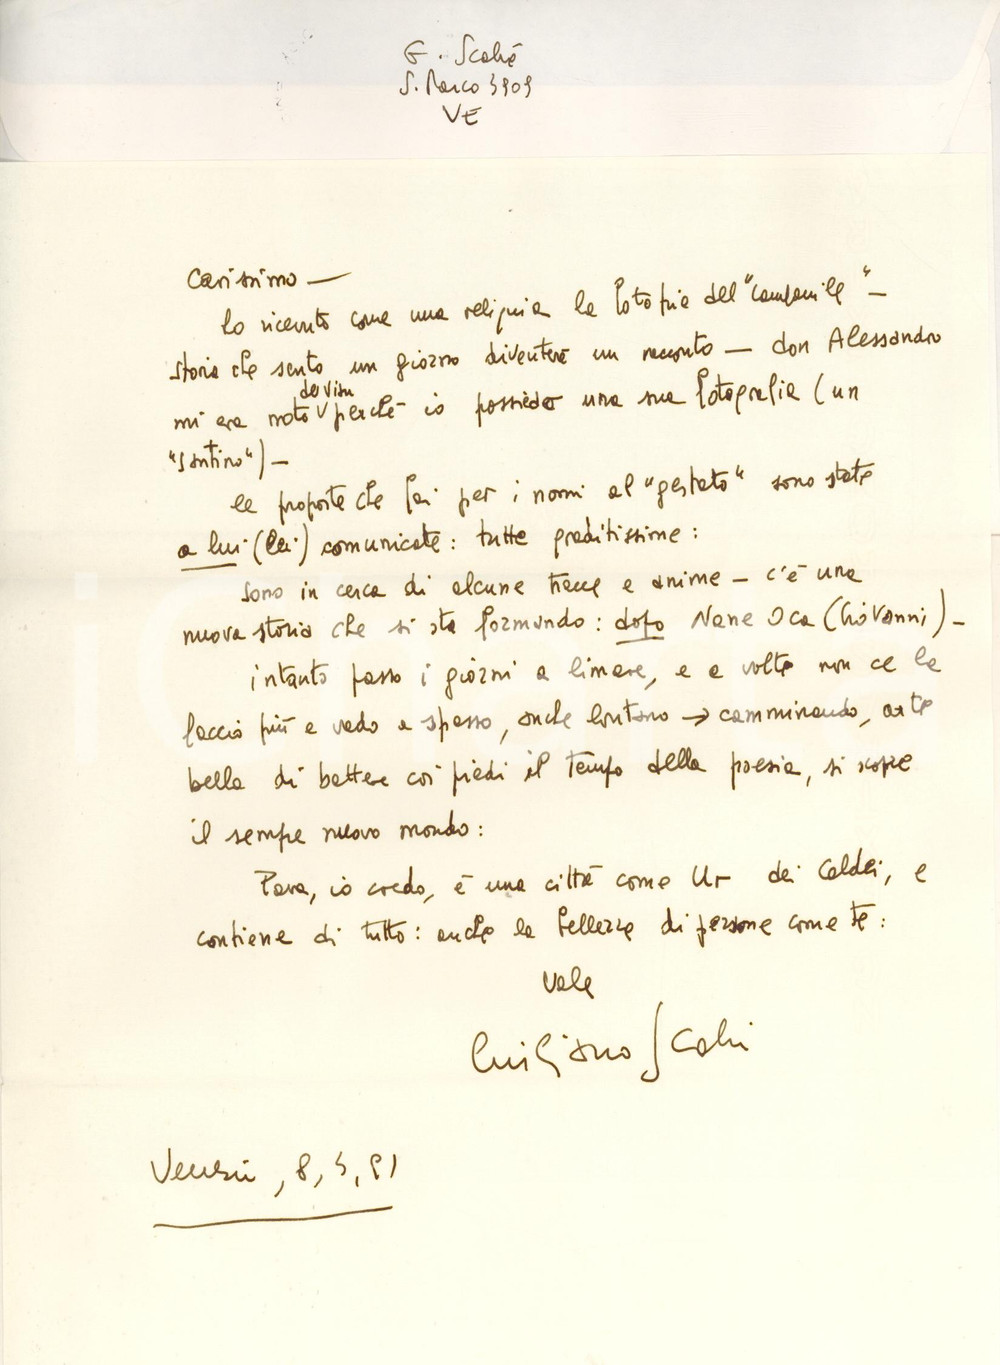 G. Scabia
S. Marco 3909
VE
Carissimo —
ho ricevuto come una reliquia la fotografia del "campanile" —
storia che sento un giorno diventerà un racconto — don Alessandro
de visu
mi era noto V perché io possiedo una sua fotografia (un
"santino") —
le proposte che fai per i nomi al "gestato" sono state
a lui (lei) comunicate: tutte graditissime:
sono in cerca di alcune tracce e anime — c'è una
nuova storia che si sta formando: dopo Nane Oca (Giovanni) —
intanto passo i giorni a limare, e a volte non ce la
faccio più e vado a spasso, anche lontano → camminando, arte
bella di battere coi piedi il tempo della poesia, si scopre
il sempre nuovo mondo:
Pava, io credo, è una città come Ur dei Caldei, e
contiene di tutto: anche la bellezza di persone come te:
Vale
Giuliano Scabia
Venezia, 8, 3, 91